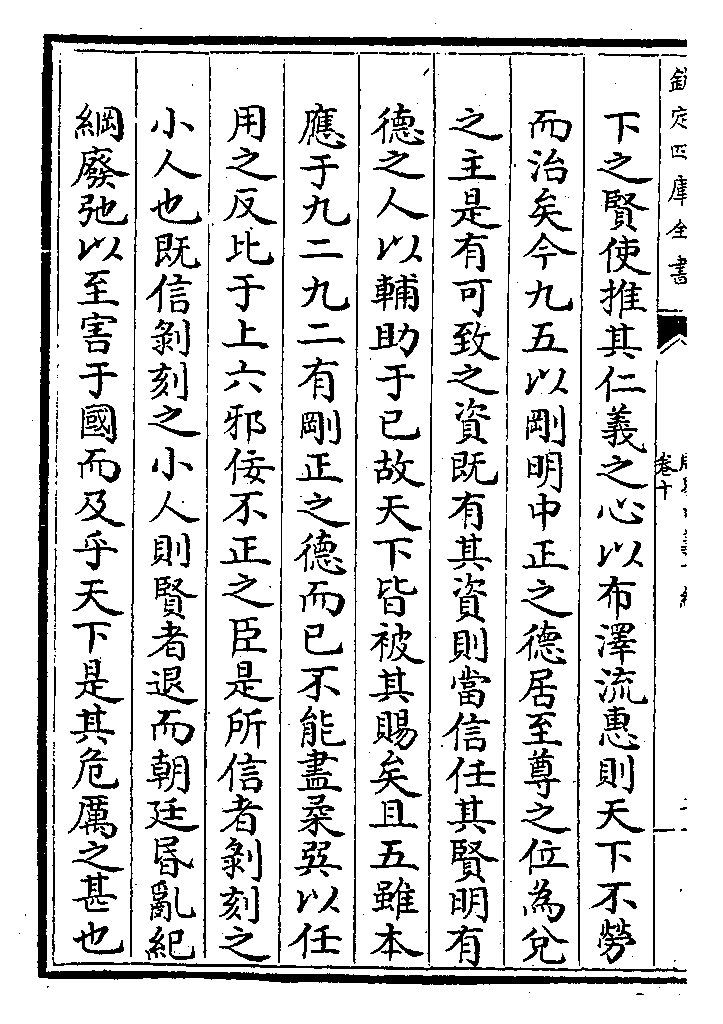 欽定四庫全書
卷十
下之賢使推其仁義之心以布澤流惠則天下不勞
而治矣今九五以剛明中正之德居至尊之位為兌
之主是有可致之資既有其資則當信任其賢明有
德之人以輔助于已故天下皆被其賜矣且五雖本
應于九二九二有剛正之德而已不能盡柔巽以任
用之反比于上六邪佞不正之臣是所信者剝刻之
小人也既信剝刻之小人則賢者退而朝廷昬亂紀
綱廢弛以至害于國而及乎天下是其危厲之甚也